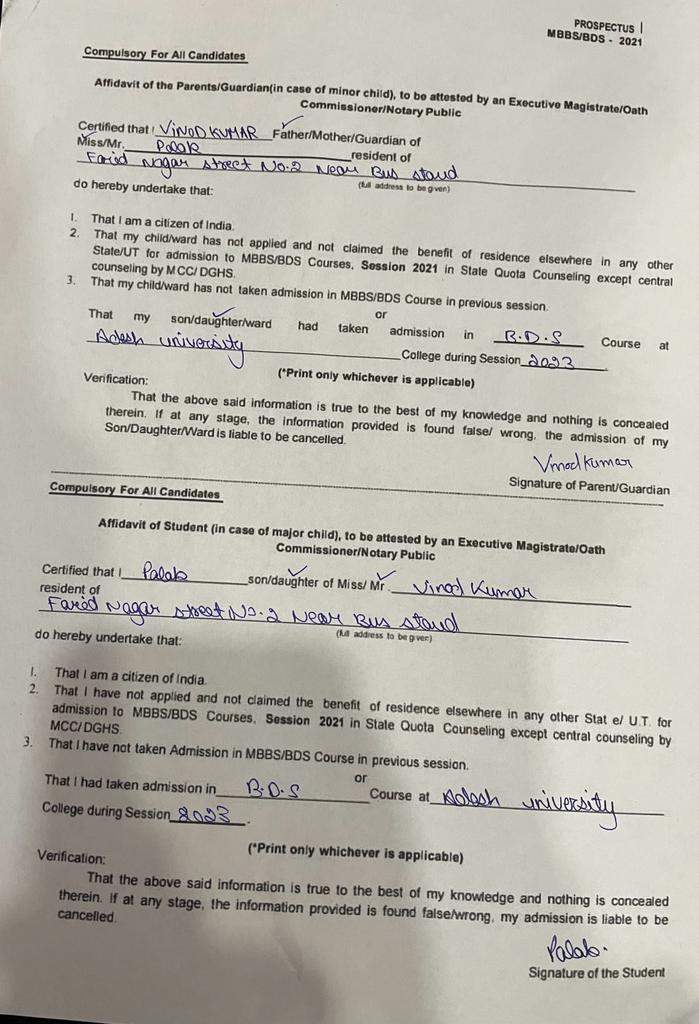 PROSPECTUS
MBBS/BDS - 2021
Compulsory For All Candidates
Affidavit of the Parents/Guardian(in case of minor child), to be attested by an Executive Magistrate/Oath
Commissioner/Notary Public
Certified that I VINOD KUMAR Father/Mother/Guardian of
Miss/Mr. Palak resident of
Farid Nagar street No.2 Near Bus stand
do hereby undertake that: (full address to be given)
1. That I am a citizen of India.
2. That my child/ward has not applied and not claimed the benefit of residence elsewhere in any other
State/UT for admission to MBBS/BDS Courses, Session 2021 in State Quota Counseling except central
counseling by MCC/ DGHS.
3. That my child/ward has not taken admission in MBBS/BDS Course in previous session.
or
That my son/daughter/ward had taken admission in B.D.S Course at
Adesh university College during Session 2023.
(*Print only whichever is applicable)
Verification:
That the above said information is true to the best of my knowledge and nothing is concealed
therein. If at any stage, the information provided is found false/ wrong, the admission of my
Son/Daughter/Ward is liable to be cancelled.
Vinod Kumar
Signature of Parent/Guardian
Compulsory For All Candidates
Affidavit of Student (in case of major child), to be attested by an Executive Magistrate/Oath
Commissioner/Notary Public
Certified that I Palak son/daughter of Miss/ Mr. Vinod Kumar
resident of
Farid Nagar street No.2 Near Bus stand
do hereby undertake that: (full address to be given)
1. That I am a citizen of India.
2. That I have not applied and not claimed the benefit of residence elsewhere in any other Stat e/ U.T. for
admission to MBBS/BDS Courses, Session 2021 in State Quota Counseling except central counseling by
MCC/ DGHS.
3. That I have not taken Admission in MBBS/BDS Course in previous session.
or
That I had taken admission in B.D.S Course at Adesh university
College during Session 2023.
(*Print only whichever is applicable)
Verification:
That the above said information is true to the best of my knowledge and nothing is concealed
therein. If at any stage, the information provided is found false/wrong, my admission is liable to be
cancelled.
Palak.
Signature of the Student